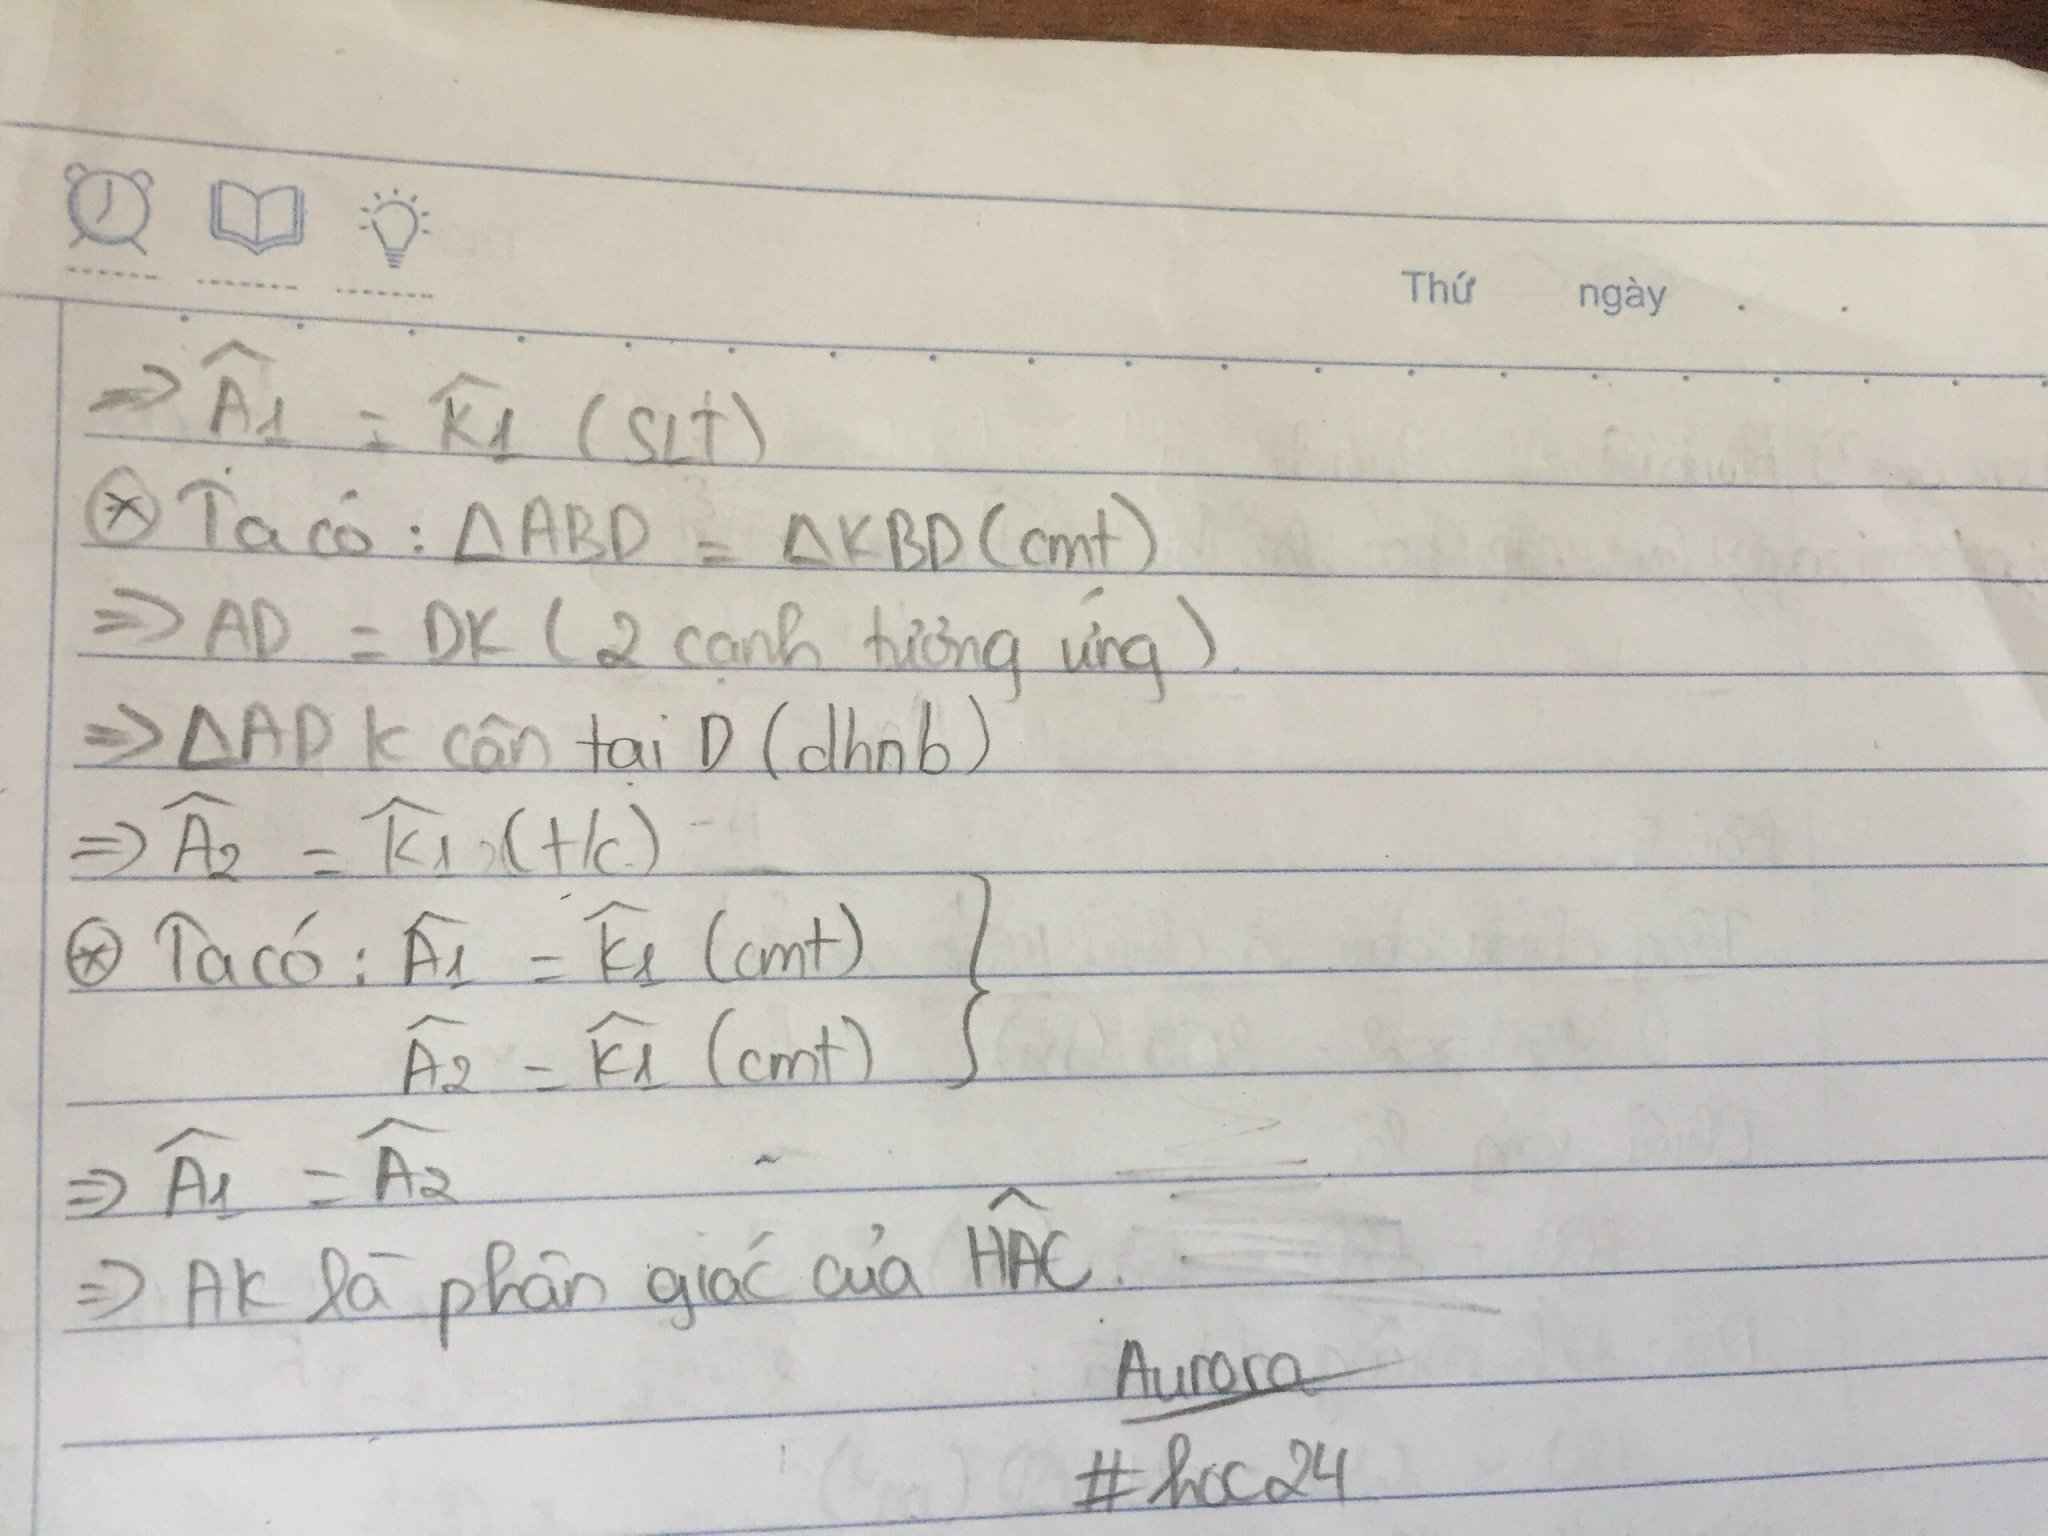 Thứ ngày . .
=> Â1 = K̂1 (SLT)
⊛ Ta có : ΔABD = ΔKBD (cmt)
=> AD = DK (2 cạnh tương ứng).
=> ΔADK cân tại D (dhnb)
=> Â2 = K̂1 (t/c)
⊛ Ta có : Â1 = K̂1 (cmt)
Â2 = K̂1 (cmt) }
=> Â1 = Â2
=> AK là phân giác của HÂC.
Aurora
#hoc24